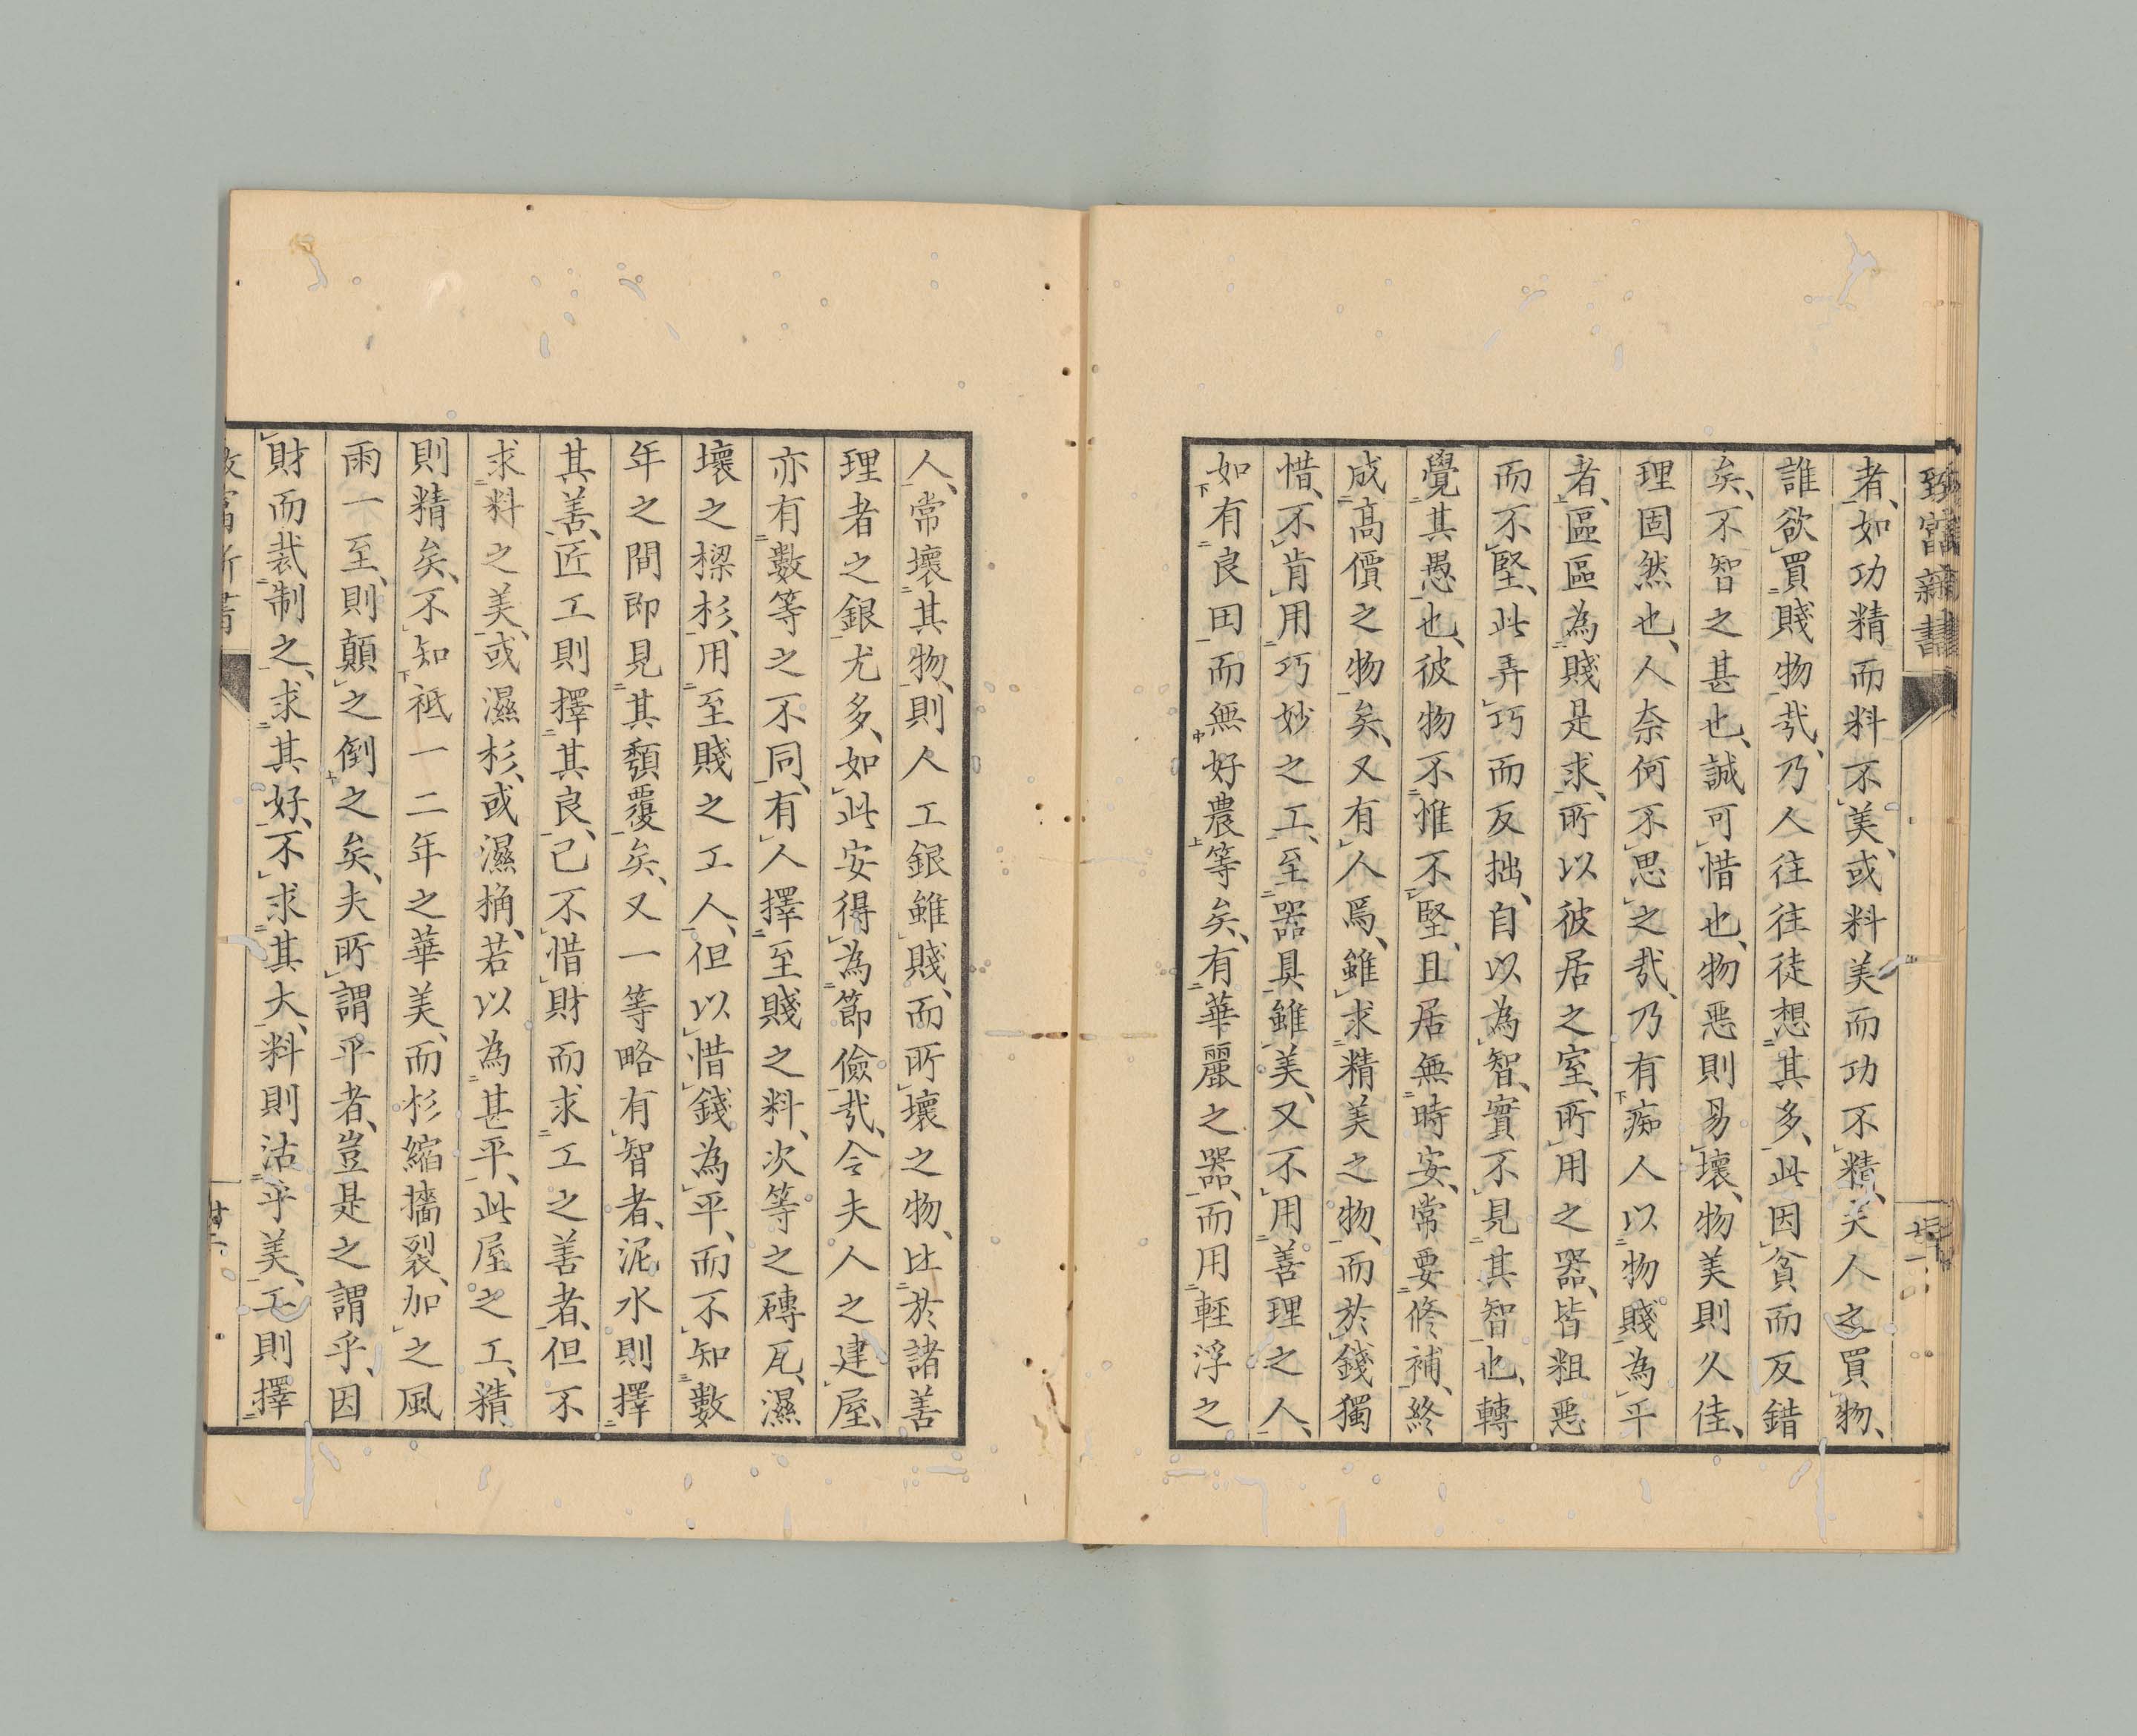 致富新書
者、如功精而料不美、或料美而功不精、夫人之買物、
誰欲買賤物哉、乃人往往徒想其多、此因貪而反錯
矣、不智之甚也、誠可惜也、物惡則易壞、物美則久佳、
理固然也、人奈何不思之哉、乃有痴人以物賤為平
者、區區為賤是求、所以彼居之室、所用之器、皆粗惡
而不堅、此弄巧而反拙、自以為智、實不見其智也、轉
覺其愚也、彼物不惟不堅、且居無時安、常要修補、終
成高價之物矣、又有人焉、雖求精美之物、而於錢獨
惜、不肯用巧妙之工、至器具雖美、又不用善理之人、
如有良田而無好農等矣、有華麗之器、而用輕浮之
人、常壞其物、則人工銀雖賤、而所壞之物、比於諸善
理者之銀尤多、如此安得為節儉哉、今夫人之建屋、
亦有數等之不同、有人擇至賤之料、次等之磚瓦、濕
壞之樑杉、用至賤之工人、但以惜錢為平、而不知數
年之間即見其頹覆矣、又一等略有智者、泥水則擇
其善、匠工則擇其良、己不惜財而求工之善者、但不
求料之美、或濕杉、或濕桷、若以為甚平、此屋之工、精
則精矣、不知祗一二年之華美、而杉縮墻裂、加之風
雨一至、則顛之倒之矣、夫所謂平者、豈是之謂乎、因
財而裁制之、求其好、不求其大、料則沽乎美、工則擇